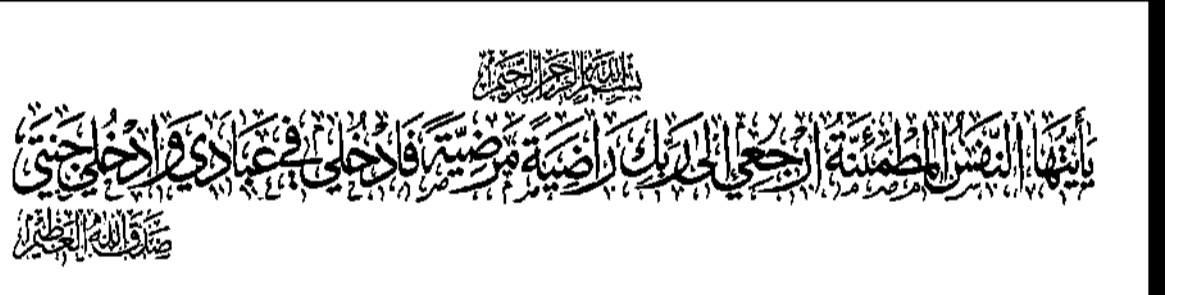 بِسْمِ اللَّهِ الرَّحْمَٰنِ الرَّحِيمِ
يَا أَيَّتُهَا النَّفْسُ الْمُطْمَئِنَّةُ ارْجِعِي إِلَى رَبِّكِ رَاضِيَةً مَّرْضِيَّةً فَادْخُلِي فِي عِبَادِي وَادْخُلِي جَنَّتِي
صَدَقَ اللَّهُ الْعَظِيمُ